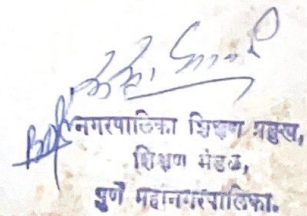 नगरपालिका शिक्षण प्रमुख,
शिक्षण मंडळ,
पुणे महानगरपालिका.